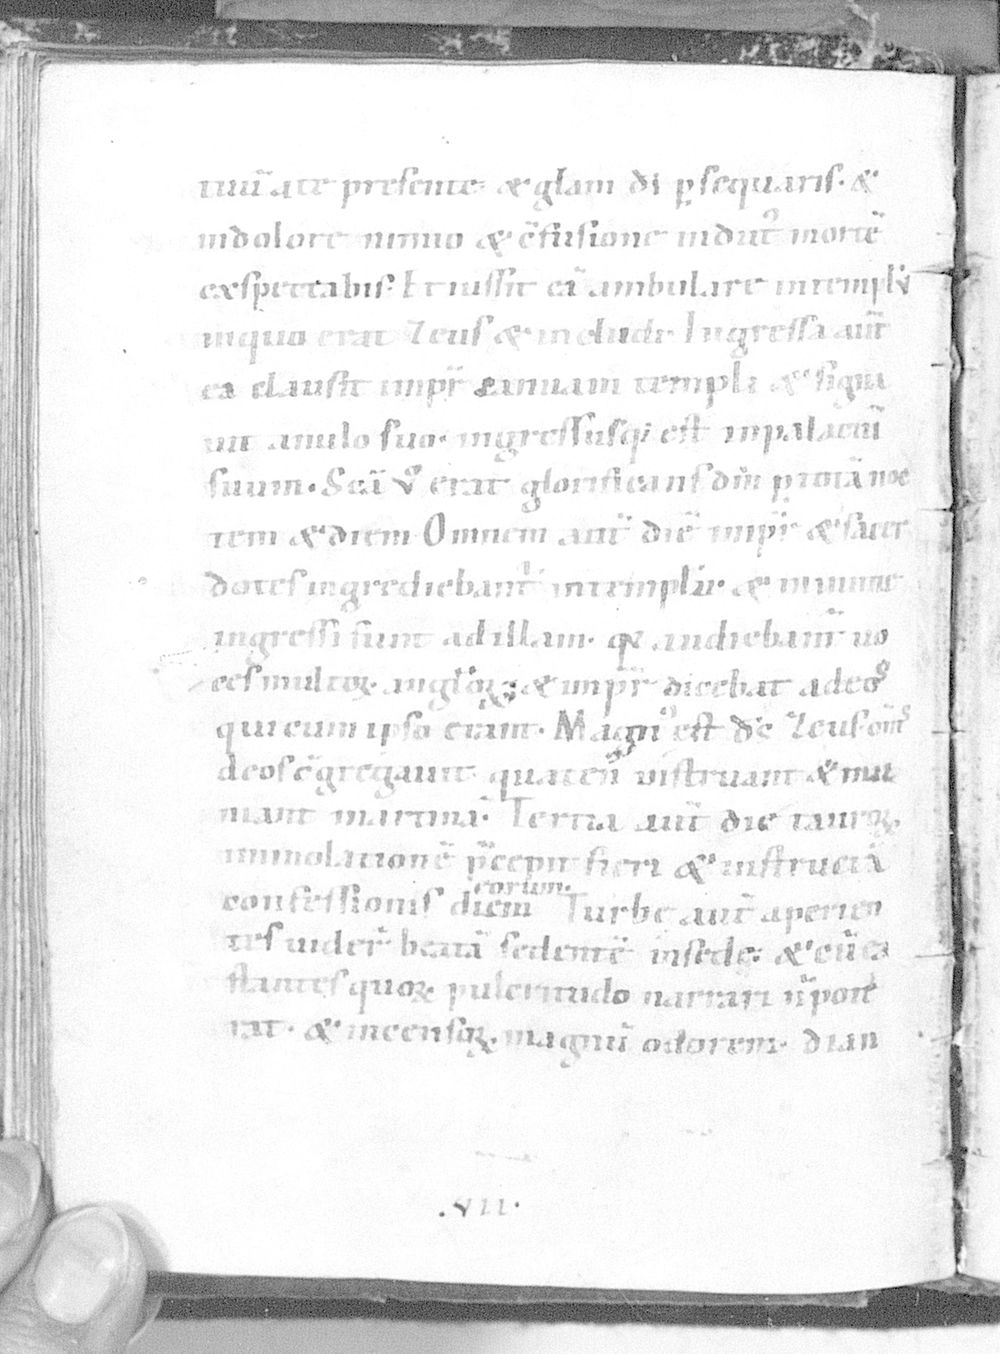 tuũ a te presente· & glam di p̱sequaris· &
in dolore nimio & c̃fusione indut᷒ mortẽ
exspectabis· Et iussit eã ambulare in templũ
in quo erat Zeus & includi· Ingressa aũt
ea clausit imp̃r ianuam templi &
uit anulo suo· ingressusq; est in palaciũ
suum· Scã v̊ erat glorificans dñm p totã noc
tem & diem Omnem aũt diẽ imp̃r & sacer
dotes ingrediebant᷒ in templũ· &
ingressi sunt ad illam· audiebant᷒ uo
ces multoꝝ angl̃oꝝ; & imp̃r dicebat ad eos
qui cum ipso erant· Magn᷒ est Zeus om̃s
deos c̃gregauit quaten᷒ instruant &
martinã· Tertia aũt die tauroꝝ
immolationẽ p̃cepit fieri & instructã
confessionis diem eorum· Turbe aũt aperien
tes uider̃ beatã sedentẽ in sede· & cũ ea
stantes quoꝝ pulcritudo narrari ñ pote
rat· & incensoꝝ magnũ odorem· dian
·VII·